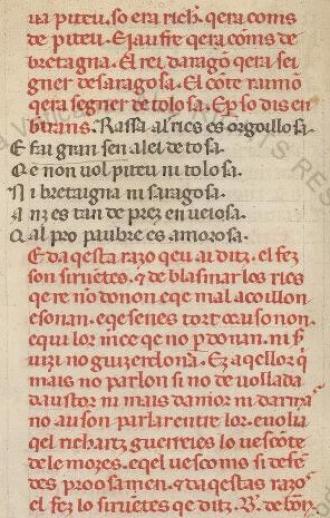 ua piteu. so era richz. qera coms
de piteu. E iaufre qera coms de
bretagna. El rei daragō qera sei
gner desaragosa. El cōte raimō
qera segner de tolosa. Ep so dis en
btrans. Rassa als ries es orgoillosa.
E fai gran sen alei de tosa.
Qe non uol piteu ni tolosa.
Ni bretaigna ni saragosa.
Anz es tan de prez enuelosa.
Qal pro paubre es amorosa.
E daqesta razo qeu ai ditz. el fez
son siruētes. ⁊ de blasmar los rics
qe re nō donon. e qe mal acoillon
e sonan. e qe senes tort ocusonon.
e qui lor mce qe no pdonan. ni s
uizi no guizerdonā. Ez aqellor q
mais no parlon si no de uollada
daustor ni mais damor ni darma
no auson parlar entre lor. e uolia
qel richartz guerreies lo uescōte
de lemozes. e qel uescoms si defē
des proosamen. ⁊ daqestas razo
el fez lo siruētes qe ditz. B. de bō